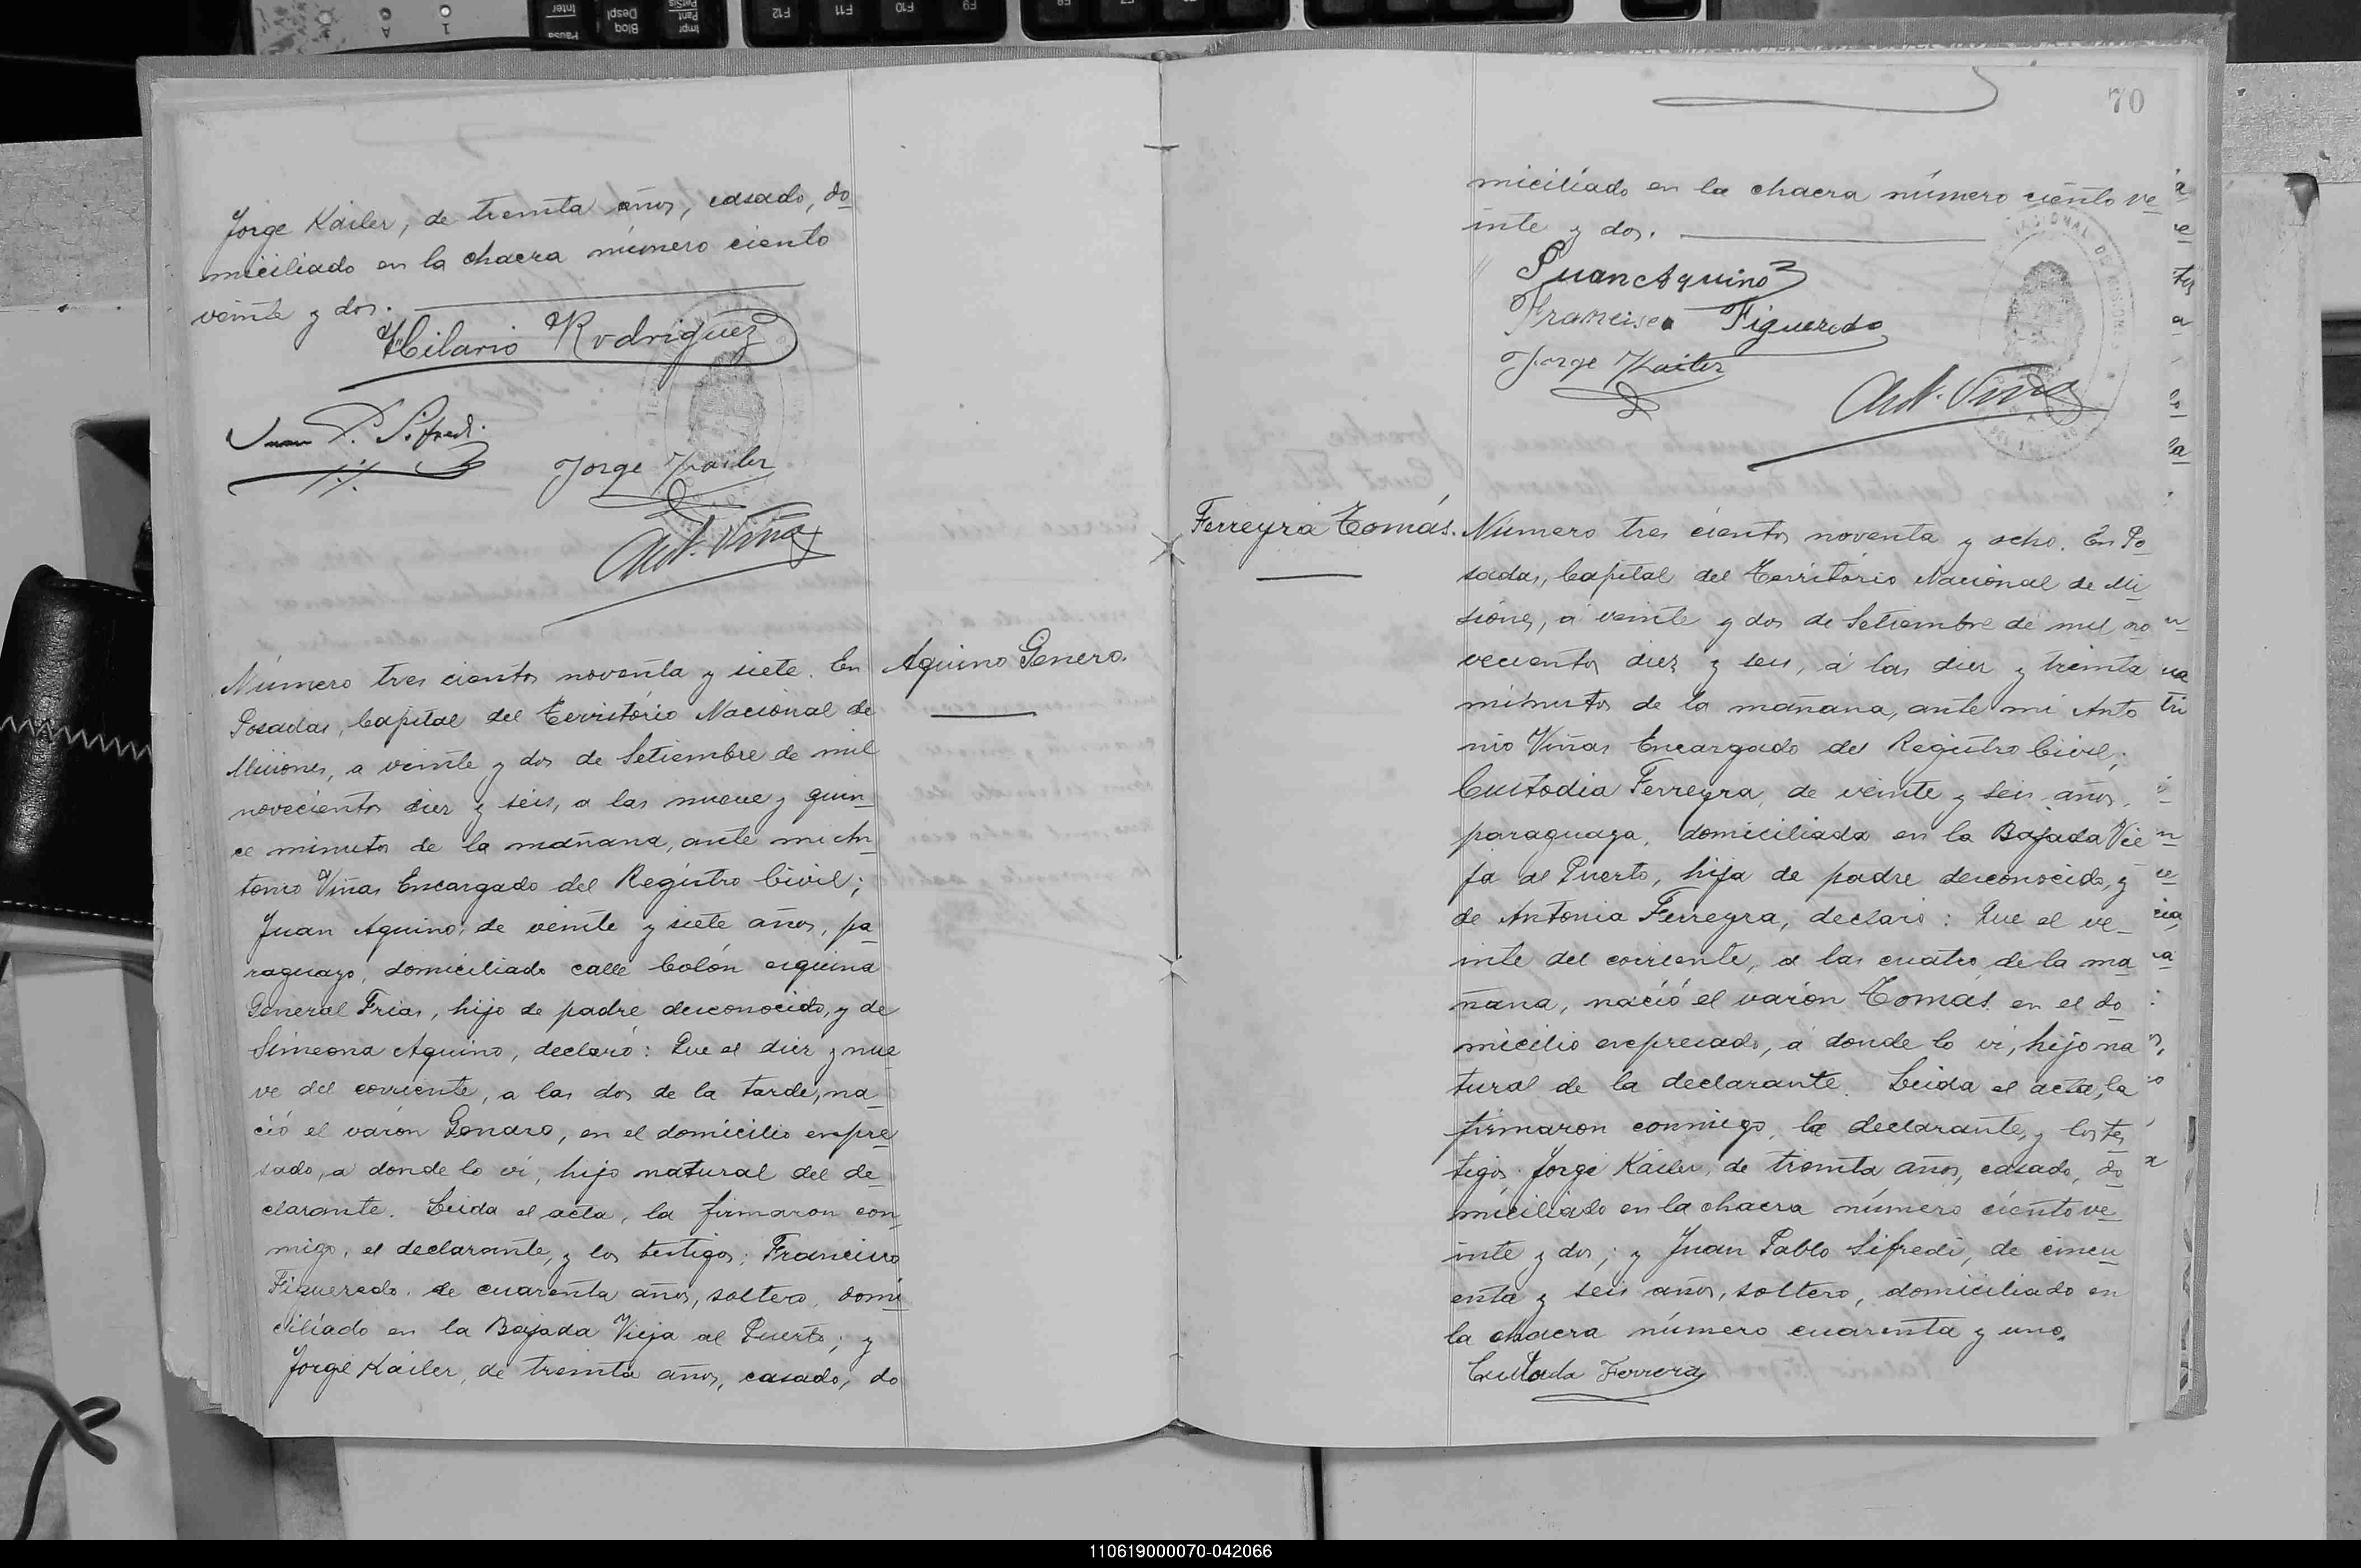 Jorge Káiler, de treinta años, casado, do
miciliado en la chacra número ciento
veinte y dos.
Hilario Rodriguez
Juan P. Sifredi
Jorge Kailer
Ant. Viñas
Aquino Genero.
Número tres cientos noventa y siete. En
Posadas, Capital del Territorio Nacional de
Misiones, a veinte y dos de Setiembre de mil
novecientos diez y seis, a las nueve y quin
ce minutos de la mañana, ante mi An
tonio Viñas Encargado del Registro Civil;
Juan Aquino, de veinte y siete años, pa
raguayo, domiciliado calle Colón esquina
General Frias, hijo de padre desconocido, y de
Simeona Aquino, declaró: Que el diez y nue
ve del corriente, a las dos de la tarde, na
ció el varón Genaro, en el domicilio expre
sado, a donde lo vi, hijo natural del de
clarante. Leida el acta, la firmaron con
migo, el declarante, y los testigos: Francisco
Figueredo, de cuarenta años, soltero, domi
ciliado en la Bajada Vieja al Puerto; y
Jorge Káiler, de treinta años, casado, do
70
miciliado en la chacra número ciento ve
inte y dos.
Juan Aquino
Francisco Figueredo
Jorge Kailer
Ant. Viñas
Ferreyra Tomás.
Número tres cientos noventa y ocho. En Po
sadas, Capital del Territorio Nacional de Mi
siones, á veinte y dos de Setiembre de mil no
vecientos diez y seis, á las diez y treinta
minutos de la mañana, ante mi Anto
nio Viñas Encargado del Registro Civil;
Custodia Ferreyra, de veinte y seis años,
paraguaya, domiciliada en la Bajada Vie
ja al Puerto, hija de padre desconocido, y
de Antonia Ferreyra, declaró: Que el ve
inte del corriente, a las cuatro de la ma
ñana, nació el varón Tomás en el do
micilio expresado, á donde lo vi, hijo na
tural de la declarante. Leida el acta, la
firmaron conmigo, la declarante, y los tes
tigos Jorge Káiler, de treinta años, casado, do
miciliado en la chacra número ciento ve
inte y dos; y Juan Pablo Sifredi, de cincu
enta y seis años, soltero, domiciliado en
la chacra número cuarenta y uno.
Custoda Ferrera
110619000070-042066